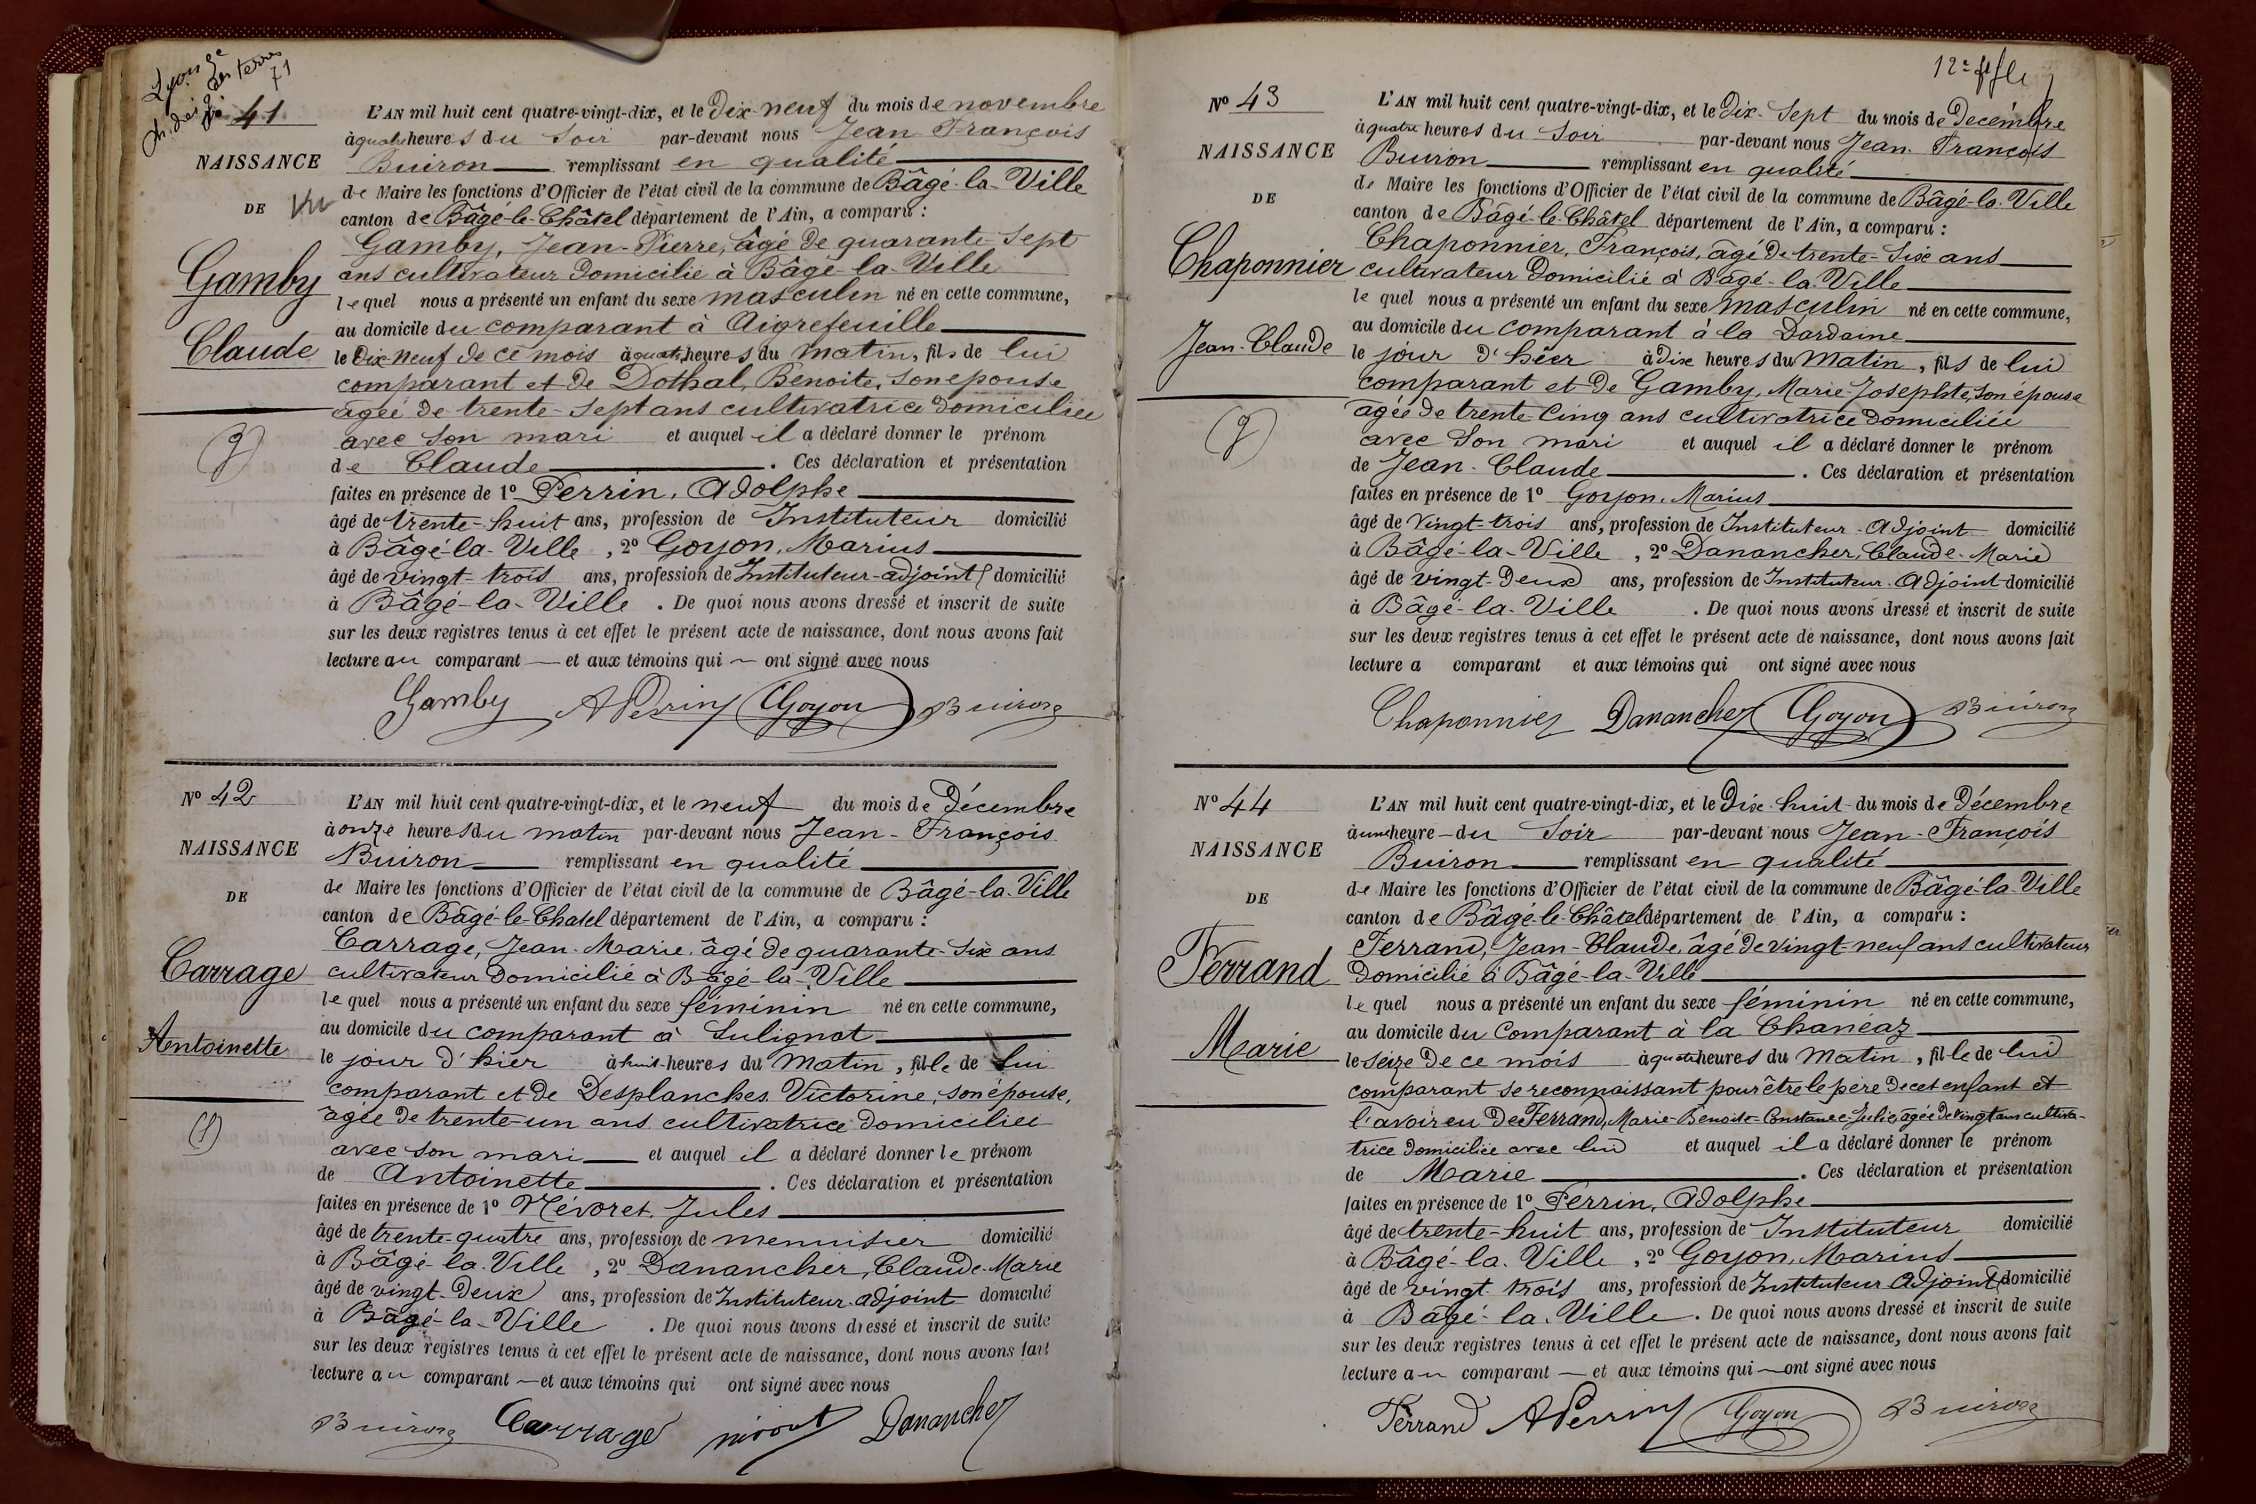 Lyon 3e
71
41
NAISSANCE
DE
Vu
Gamby
Claude
L'AN mil huit cent quatre-vingt-dix, et le Dix-neuf du mois de novembre
à quatre heures du Soir par-devant nous Jean François
Buiron remplissant en qualité
de Maire les fonctions d'Officier de l'état civil de la commune de Bâgé-la-Ville
canton de Bâgé-le-Châtel département de l'Ain, a comparu :
Gamby, Jean-Pierre, âgé de quarante-Sept
ans cultivateur Domicilié à Bâgé-la-Ville
lequel nous a présenté un enfant du sexe masculin né en cette commune,
au domicile du comparant à Aigrefeuille
le Dix-neuf de ce mois à quatre heures du matin, fils de lui
comparant et de Dothal, Benoite, son épouse
âgée de trente-sept ans cultivatrice domiciliée
avec son mari et auquel il a déclaré donner le prénom
de Claude . Ces déclaration et présentation
faites en présence de 1º Perrin, Adolphe
âgé de trente-huit ans, profession de Instituteur domicilié
à Bâgé-la-Ville , 2º Goyon, Marius
âgé de vingt-trois ans, profession de Instituteur-adjoint domicilié
à Bâgé-la-Ville . De quoi nous avons dressé et inscrit de suite
sur les deux registres tenus à cet effet le présent acte de naissance, dont nous avons fait
lecture au comparant et aux témoins qui ont signé avec nous
Gamby APerrin Goyon Buiron
Nº 42
NAISSANCE
DE
Carrage
Antoinette
L'AN mil huit cent quatre-vingt-dix, et le neuf du mois de Décembre
à onze heures du matin par-devant nous Jean-François
Buiron remplissant en qualité
de Maire les fonctions d'Officier de l'état civil de la commune de Bâgé-la-Ville
canton de Bâgé-le-Chatel département de l'Ain, a comparu :
Carrage, Jean-Marie, âgé de quarante-Six ans
cultivateur Domicilié à Bâgé-la-Ville
lequel nous a présenté un enfant du sexe féminin né en cette commune,
au domicile du comparant à Sulignat
le jour d'hier à huit heures du Matin, fille de lui
comparant et de Desplanches Victorine, son épouse,
âgée de trente-un ans cultivatrice domiciliée
avec son mari et auquel il a déclaré donner le prénom
de Antoinette . Ces déclaration et présentation
faites en présence de 1º Névoret, Jules
âgé de trente-quatre ans, profession de menuisier domicilié
à Bâgé-la-Ville , 2º Danancher, Claude-Marie
âgé de vingt-Deux ans, profession de Instituteur-adjoint domicilié
à Bâgé-la-Ville . De quoi nous avons dressé et inscrit de suite
sur les deux registres tenus à cet effet le présent acte de naissance, dont nous avons fait
lecture au comparant et aux témoins qui ont signé avec nous
Buiron Carrage Danancher
12e
Nº 43
NAISSANCE
DE
Chaponnier
Jean-Claude
L'AN mil huit cent quatre-vingt-dix, et le Dix-Sept du mois de Décembre
à quatre heures du Soir par-devant nous Jean-François
Buiron remplissant en qualité
de Maire les fonctions d'Officier de l'état civil de la commune de Bâgé-la-Ville
canton de Bâgé-le-Châtel département de l'Ain, a comparu :
Chaponnier, François, âgé de trente-Six ans
cultivateur Domicilié à Bâgé-la-Ville
lequel nous a présenté un enfant du sexe masculin né en cette commune,
au domicile du comparant à la Dardaine
le jour d'hier à Dix heures du Matin, fils de lui
comparant et de Gamby, Marie-Josephte, son épouse
âgée de trente-Cinq ans cultivatrice Domiciliée
avec Son mari et auquel il a déclaré donner le prénom
de Jean-Claude . Ces déclaration et présentation
faites en présence de 1º Goyon, Marius
âgé de Vingt-trois ans, profession de Instituteur-Adjoint domicilié
à Bâgé-la-Ville , 2º Danancher, Claude-Marie
âgé de vingt-Deux ans, profession de Instituteur-Adjoint domicilié
à Bâgé-la-Ville . De quoi nous avons dressé et inscrit de suite
sur les deux registres tenus à cet effet le présent acte de naissance, dont nous avons fait
lecture a comparant et aux témoins qui ont signé avec nous
Chaponnier Danancher Goyon Buiron
Nº 44
NAISSANCE
DE
Ferrand
Marie
L'AN mil huit cent quatre-vingt-dix, et le Dix-huit du mois de Décembre
à une heure du Soir par-devant nous Jean-François
Buiron remplissant en qualité
de Maire les fonctions d'Officier de l'état civil de la commune de Bâgé-la-Ville
canton de Bâgé-le-Châtel département de l'Ain, a comparu :
Ferrand, Jean-Claude, âgé de vingt-neuf ans cultivateur
Domicilié à Bâgé-la-Ville
lequel nous a présenté un enfant du sexe féminin né en cette commune,
au domicile du Comparant à la Chanéaz
le seize de ce mois à quatre heures du Matin, fille de lui
comparant se reconnaissant pour être le père de cet enfant et
l'avoir eu de Ferrand, Marie-Benoite-Constance-Julie, âgée de vingt ans cultiva-
trice domiciliée avec lui et auquel il a déclaré donner le prénom
de Marie . Ces déclaration et présentation
faites en présence de 1º Perrin, Adolphe
âgé de trente-huit ans, profession de Instituteur domicilié
à Bâgé-la-Ville , 2º Goyon, Marius
âgé de vingt-trois ans, profession de Instituteur-Adjoint domicilié
à Bâgé-la-Ville . De quoi nous avons dressé et inscrit de suite
sur les deux registres tenus à cet effet le présent acte de naissance, dont nous avons fait
lecture au comparant et aux témoins qui ont signé avec nous
Ferrand APerrin Goyon Buiron